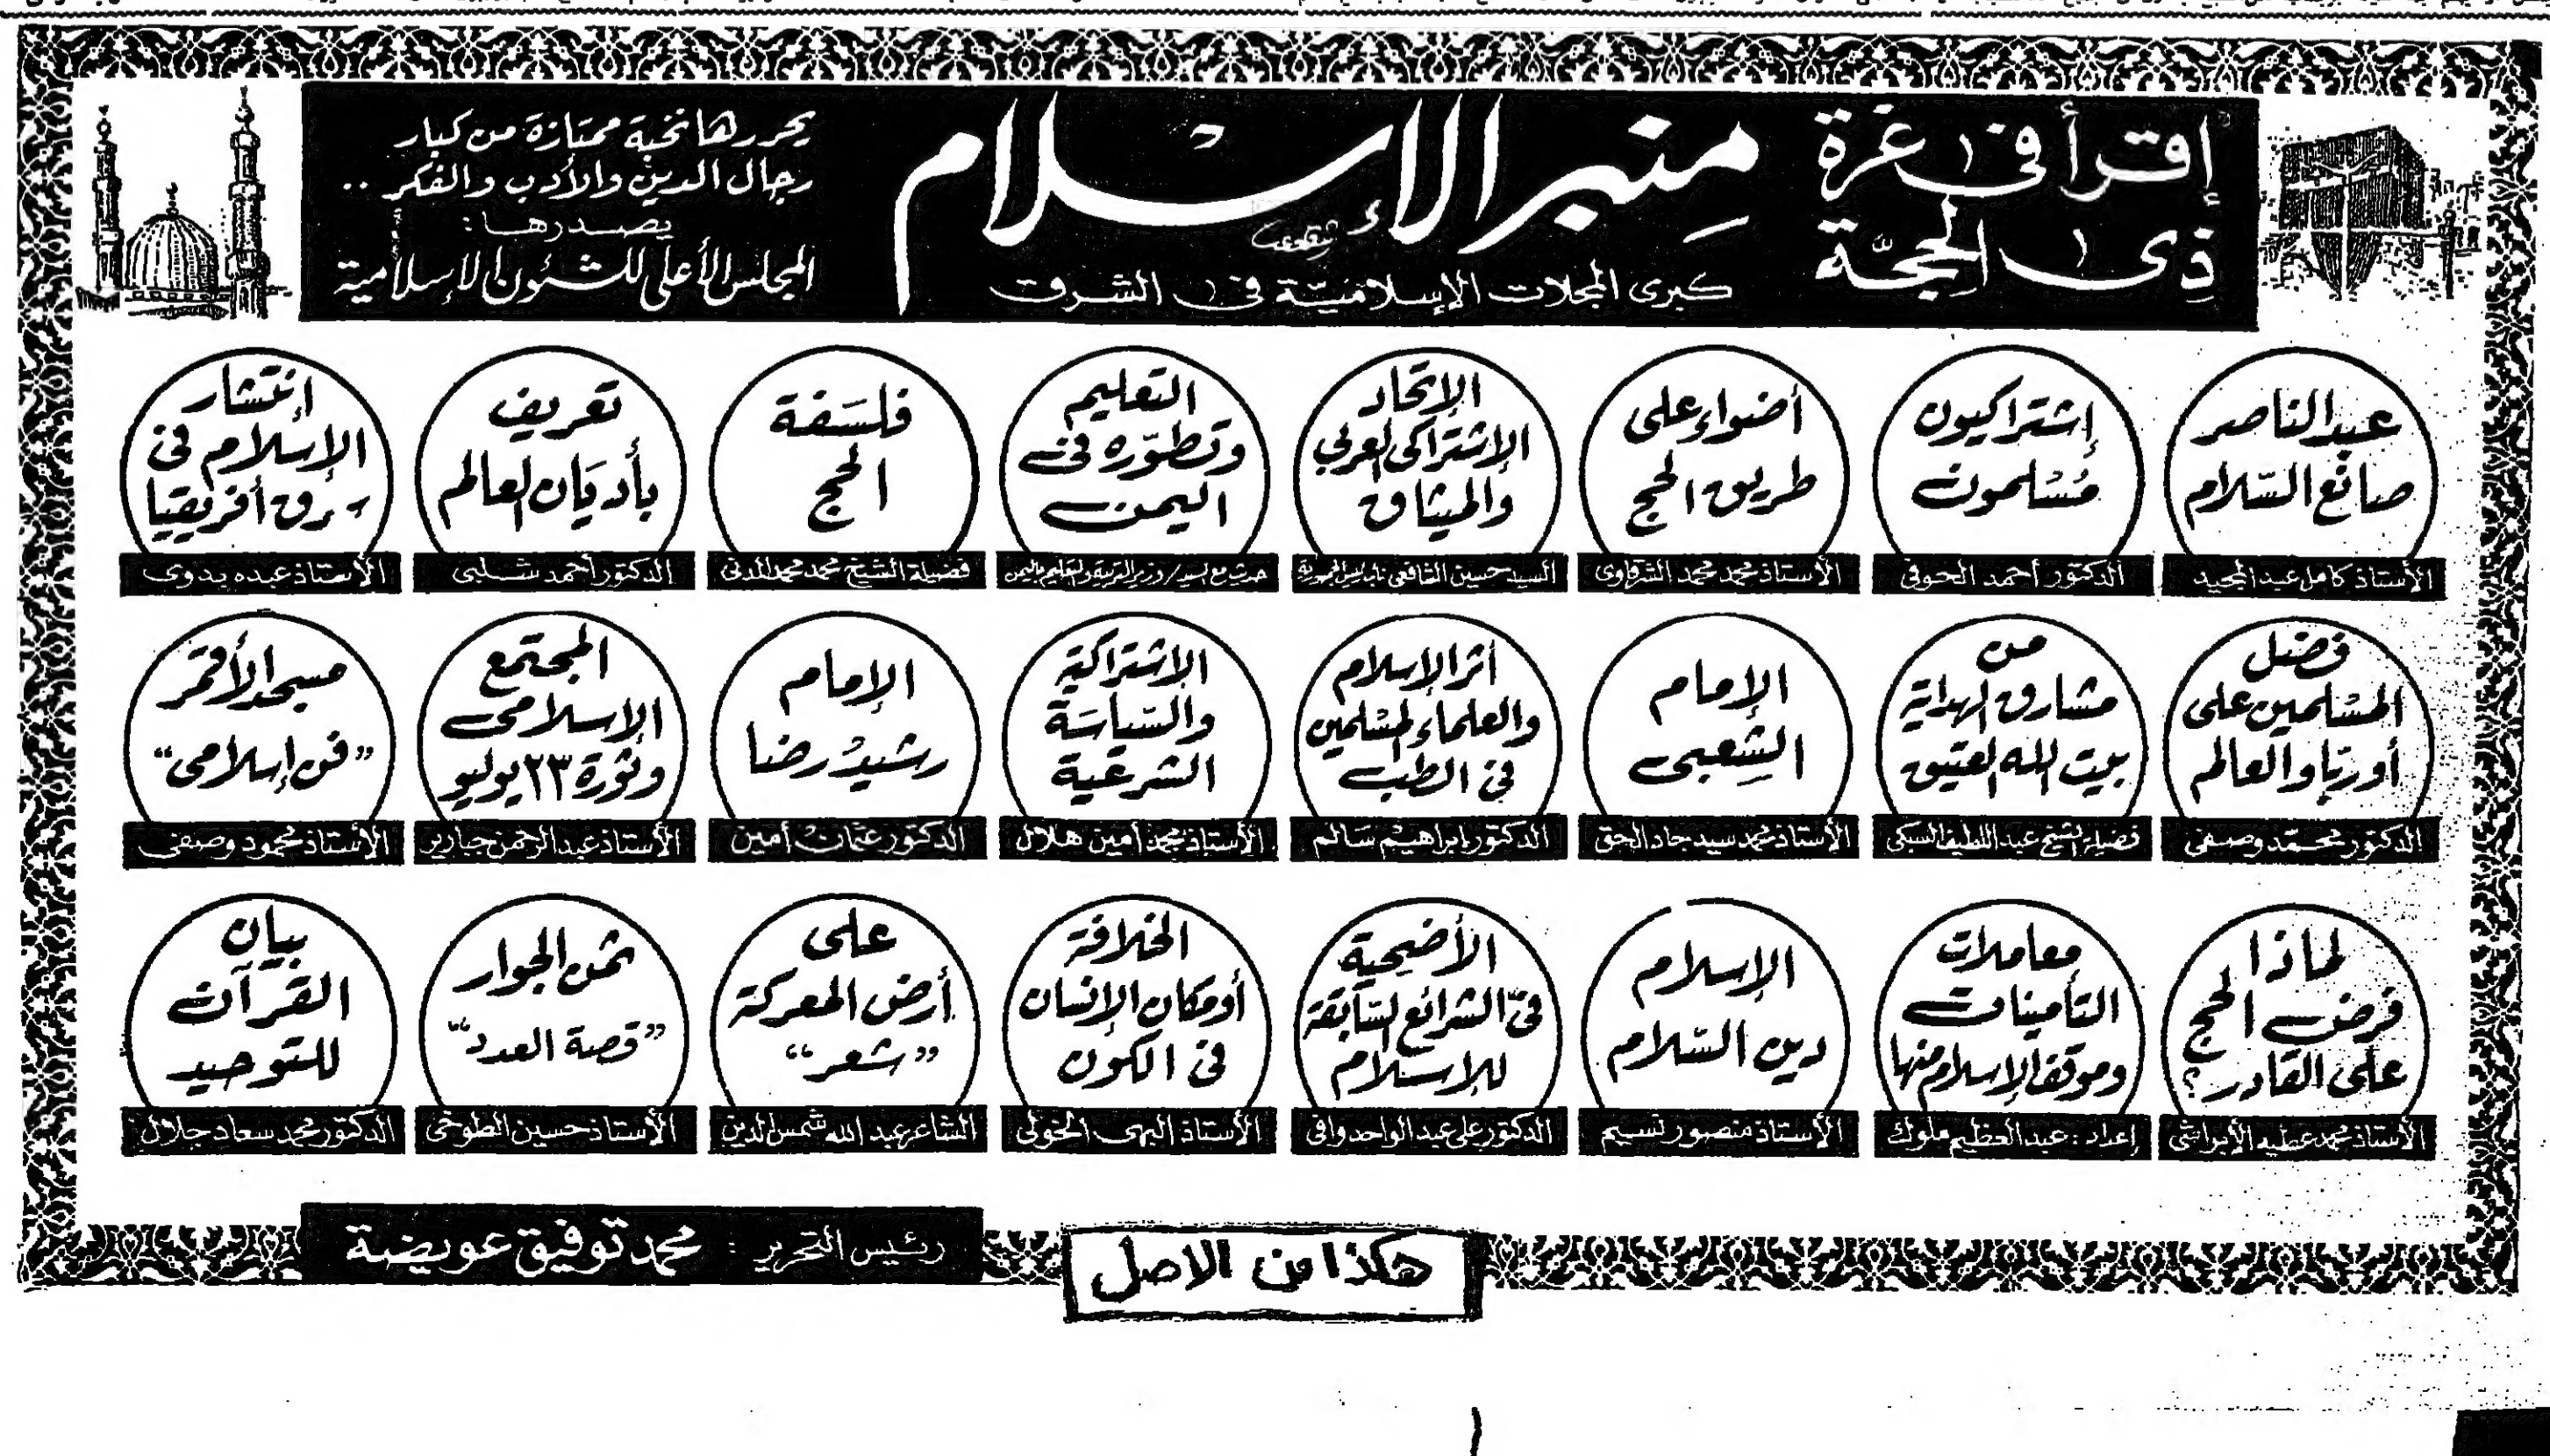 إقرأ فى غرة
ذى الحجّة
منبر الاسلام
كبرى المجلات الإسلاميّة فى الشرق
يحررها نخبة ممتازة من كبار
رجال الدين والأدب والفكر ..
يصدرها :
المجلس الأعلى للشئون الإسلامية
عبد الناصر
صانع السّلام
الأستاذ كامل عبد المجيد
إشتراكيون
مُسْلمون
الدكتور أحمد الحوفى
أضواء على
طريق الحج
الأستاذ محمد محمد الشرقاوى
الإتحاد
الإشتراكى العربي
والميثاق
السيد حسين الشافعى نائب رئيس الجمهورية
التعليم
وتطوّره فى
اليمن
حديث مع السيد/ وزير التربية والتعليم باليمن
فلسَفة
الحج
فضيلة الشيخ محمد محمد المدنى
تعريف
بأديَان العالم
الدكتور أحمد شلبى
إنتشار
الإسلام فى
شرق أفريقيا
الأستاذ عبده بدوى
فضل
المسْلمين على
أوربا والعالم
الدكتور محمّد وصفى
من
مشارق الهداية
بيت الله العتيق
فضيلة الشيخ عبد اللطيف السبكى
الإمام
الشِعبى
الأستاذ محمد سيد جاد الحق
أثر الإسلام
والعلماء المسْلمين
فى الطب
الدكتور إبراهيم سَالم
الإشتراكية
والسّياسَة
الشرعية
الأستاذ محمد أمين هلال
الإمام
رشيدْ رضا
الدكتور عثمان أمين
المجتمع
الإسلامى
وثورة ٢٣ يوليو
الأستاذ عبد الرحمن جبارير
مسجد الأقمر
"فن إسلامى"
الأستاذ محمود وصفى
لماذا
فرض الحج
على القادر ؟
الأستاذ محمد عطيه الأبراشى
معاملات
التأمينات
وموقف الإسلام منها
إعداد : عبد العظيم ملوك
الإسلام
دين السّلام
الأستاذ منصور نسيم
الأضحية
فى الشرائع السّابقة
للإسلام
الدكتور على عبد الواحد وافى
الخلافة
أو مكان الإنسان
فى الكون
الأستاذ البهى الخولى
على
أرض المعركة
"شعر"
الشاعر عبد الله شمس الدين
ثمن الجوار
"قصة العدد"
الأستاذ حسين الطوخى
بيان
القرآن
للتوحيد
الدكتور محمد سعاد جلال
رئيس التحرير : محمد توفيق عويضة
هكذا من الاصل